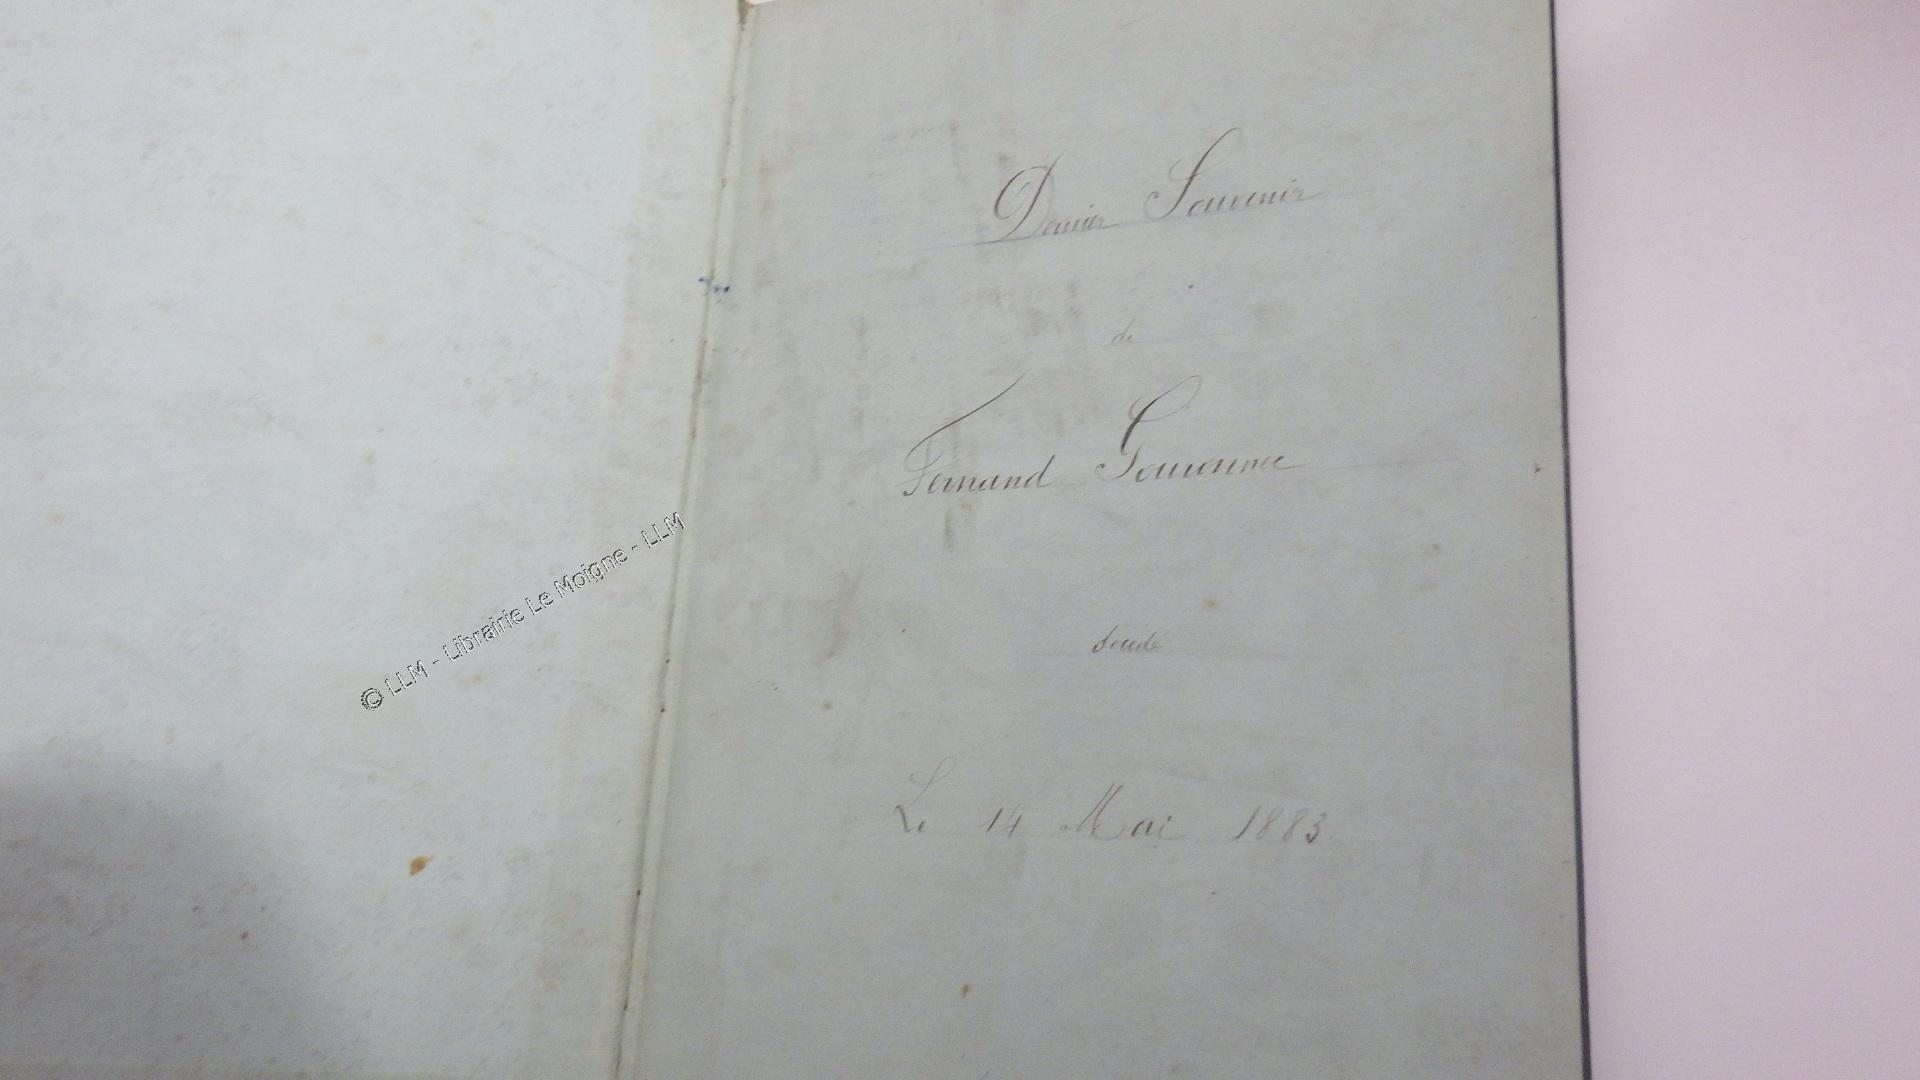 Dernier Souvenir
de
Fernand
Le 14 Mai 1883
© LLM - Librairie Le Moigne - LLM